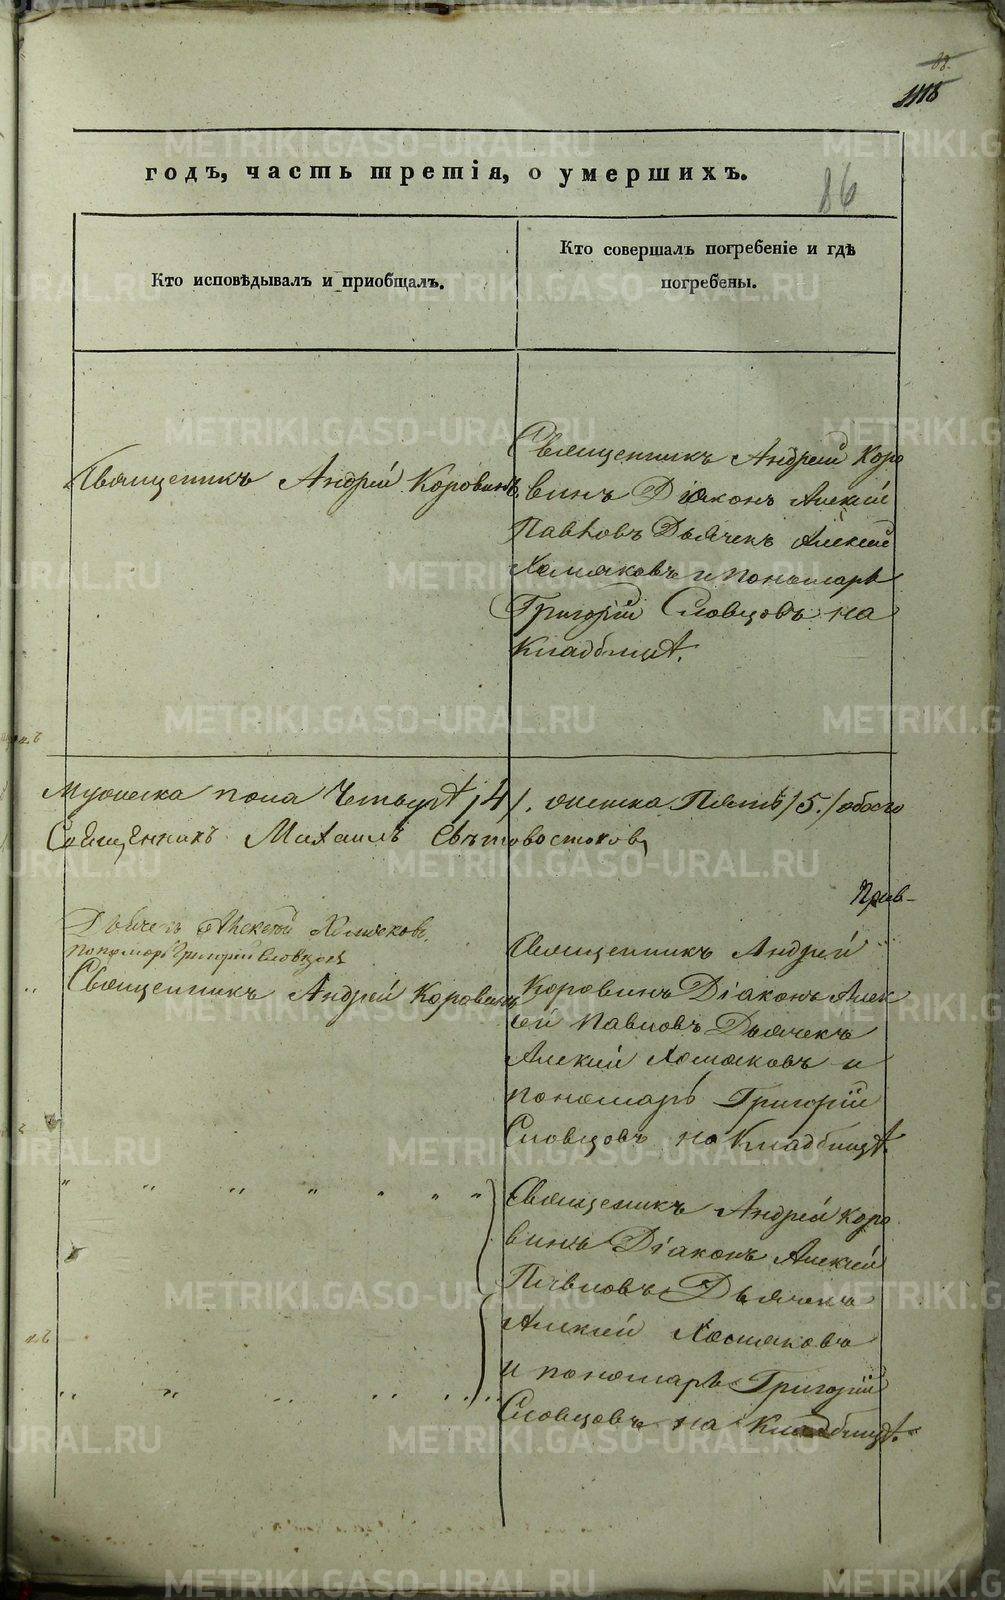 86
годъ, часть третія, о умершихъ.
Кто исповѣдывалъ и приобщалъ.
Кто совершалъ погребеніе и гдѣ
погребены.
Священникъ Андрей Коровинъ
Священникъ Андрей Коро
винъ Діаконъ Алексій
Павловъ Дьячекъ Алексий
Хомяковъ и пономарь
Григорій Словцовъ на
Кладбищѣ.
Мужеска пола Четыре /4/. женска Пять /5./ обоего
Священникъ Михаилъ Свѣтовостоковъ
Дьячекъ Алексей Хомяковъ.
Пономарь Григорий Словцовъ
Священникъ Андрей Коровинъ
Священникъ Андрей
Коровинъ Діаконъ Алек
сей Павловъ Дьячекъ
Алексий Хомяковъ и
пономарь Григорій
Словцовъ на Кладбищѣ.
Священникъ Андрей Коро
винъ Діаконъ Алексий
Павловъ Дьячекъ
Алексий Хомяковъ
и пономарь Григорій
Словцовъ на Кладбищѣ.
METRIKI.GASO-URAL.RU